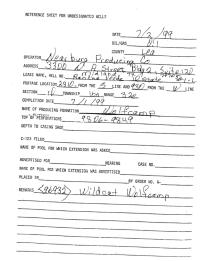 REFERENCE SHEET FOR UNDESIGNATED WELLS
DATE 7/2/99
OIL/GAS Oil
COUNTY Lea
OPERATOR Nearburg Producing Co
ADDRESS 3300 N A Street Bldg 2 Suite 120
LEASE NAME, WELL NO.
FOOTAGE LOCATION FROM THE S LINE AND FROM THE W LINE
SECTION 16 TOWNSHIP RANGE 32e
COMPLETION DATE 7/1/99
NAME OF PRODUCING FORMATION Wolfcamp
TOP OF PERFORATIONS 9806-9849
DEPTH TO CASING SHOE
C-123 FILED
NAME OF POOL FOR WHICH EXTENSION WAS ASKED
ADVERTISED FOR HEARING CASE NO.
NAME OF POOL FOR WHICH EXTENSION WAS ADVERTISED
PLACED IN BY ORDER NO. R-
REMARKS Wildcat Wolfcamp